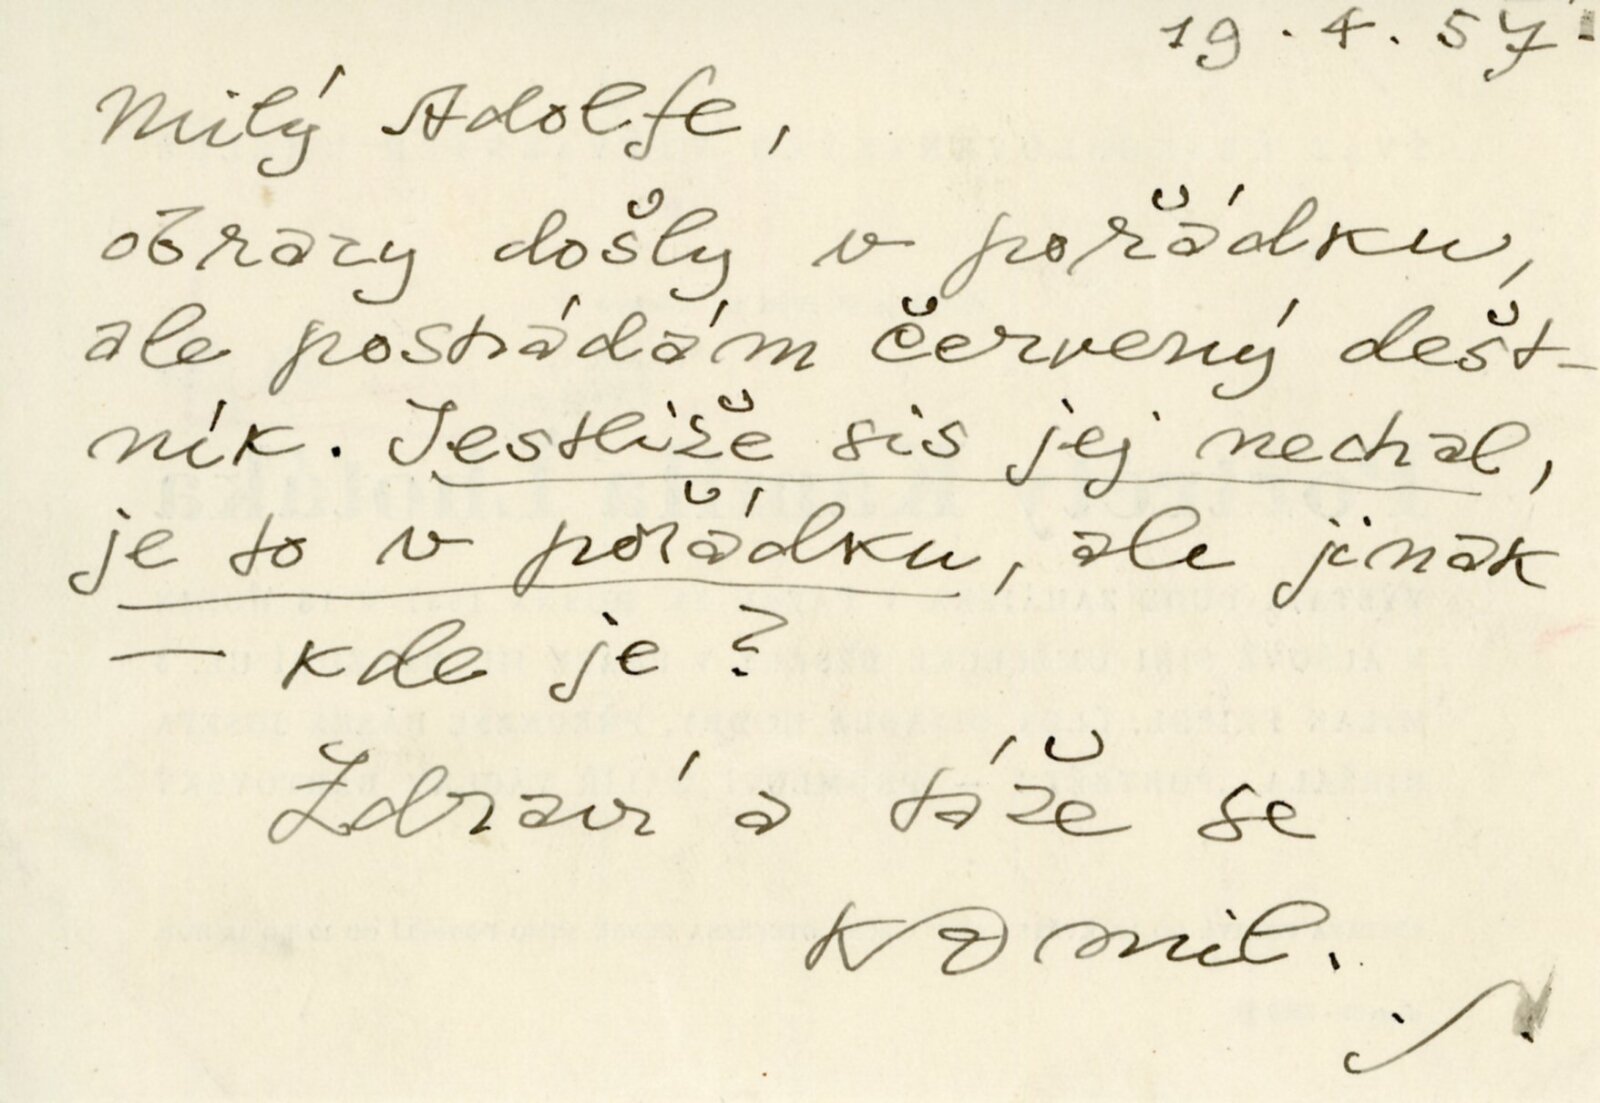 19.4.57
Milý Adolfe,
obrazy došly v pořádku,
ale postrádám červený dešt-
ník. Jestliže sis jej nechal,
je to v pořádku, ale jinak
— kde je?
Zdraví a táže se
Kamil.